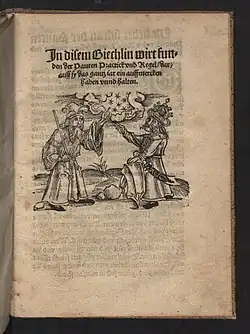 In disem Biechlin wirt fun-
den der Pauren Practick vnd Regel/ dar-
auff sy das gantz iar ein auffmercken
haben vnnd halten.